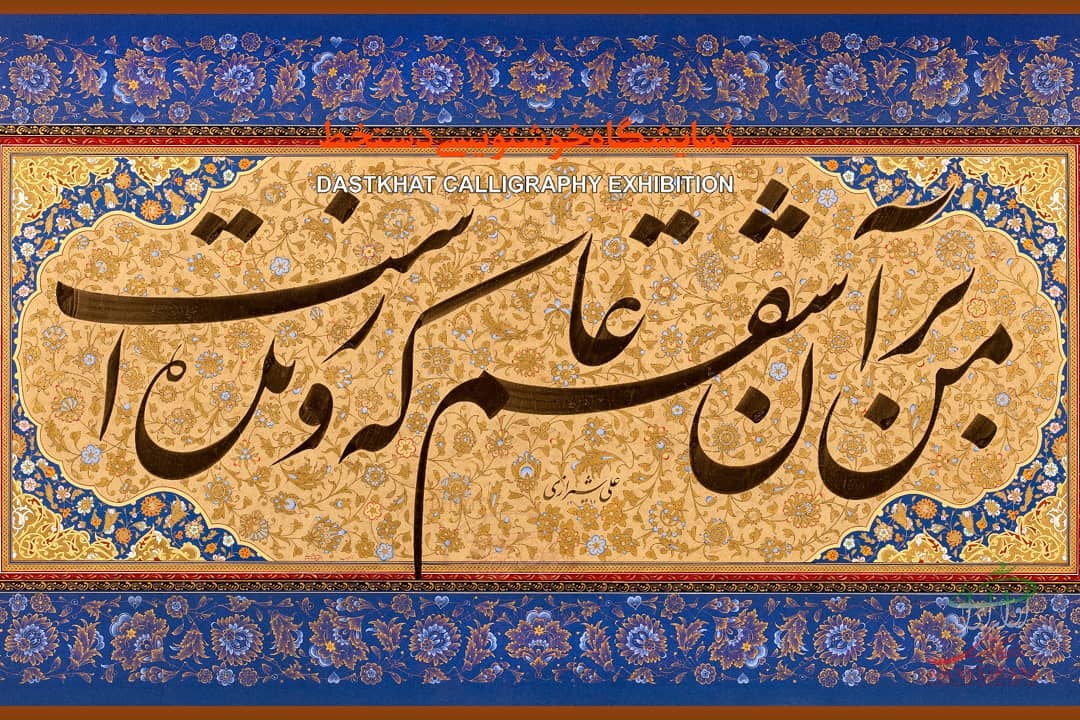 نمایشگاه خوشنویسی دستخط
DASTKHAT CALLIGRAPHY EXHIBITION
من بر آن عاشقم که رونده است
علی شیرازی